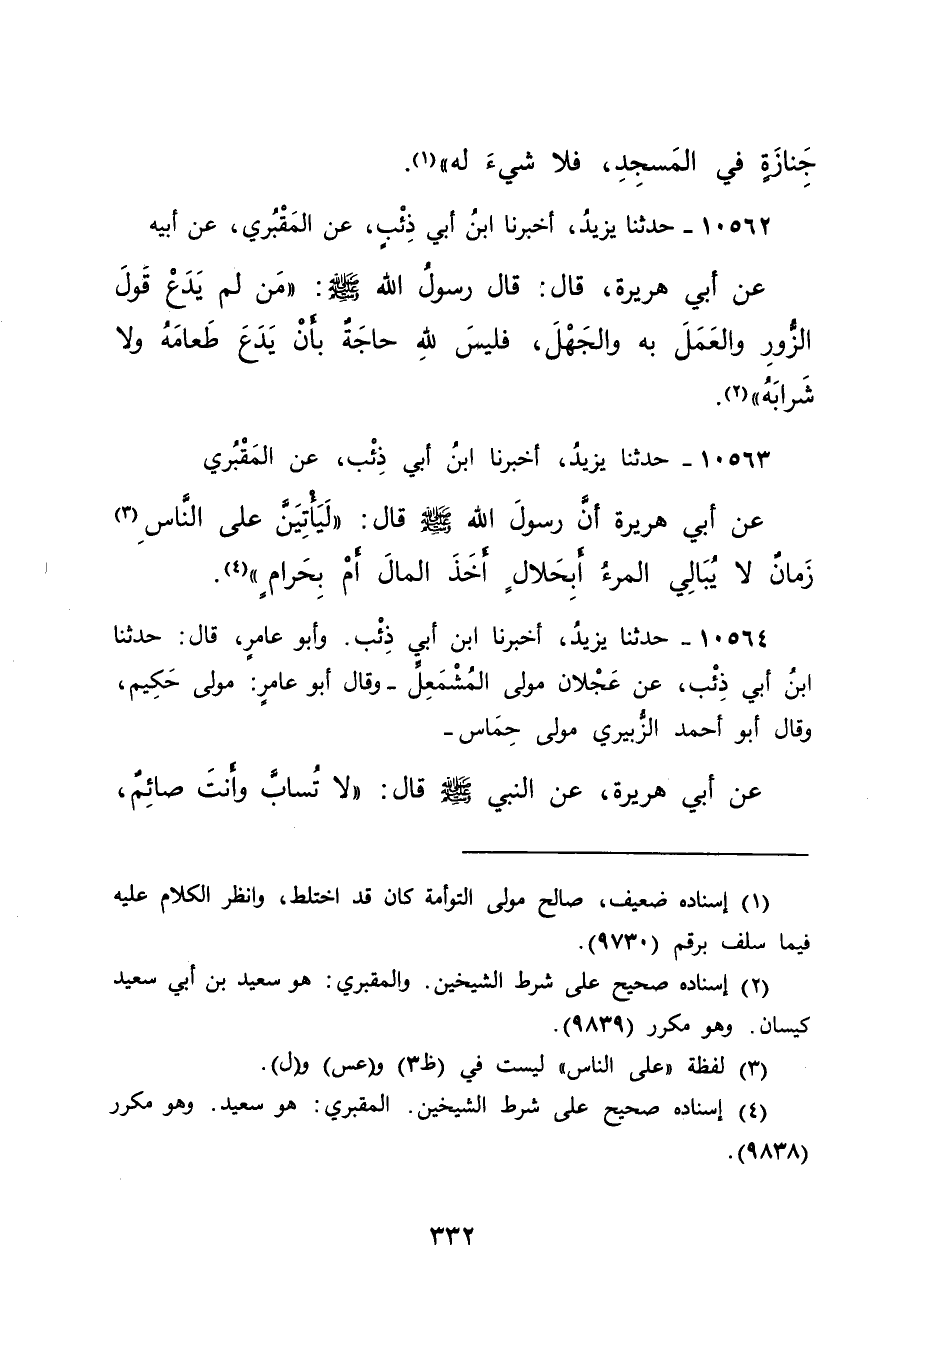 جَنازَةٍ في المَسجِدِ، فلا شيءَ له»(١).
١٠٥٦٢ - حدثنا يزيدُ، أخبرنا ابنُ أبي ذِئْبٍ، عن المَقْبُري، عن أبيه
عن أبي هريرة، قال: قال رسولُ الله ﷺ: «مَن لم يَدَعْ قَولَ
الزُّورِ والعَمَلَ به والجَهْلَ، فليسَ للهِ حاجَةٌ بأَنْ يَدَعَ طَعامَهُ ولا
شَرابَهُ»(٢).
١٠٥٦٣ - حدثنا يزيدُ، أخبرنا ابنُ أبي ذِئْب، عن المَقْبُري
عن أبي هريرة أنَّ رسولَ الله ﷺ قال: «لَيَأْتِيَنَّ على النَّاسِ(٣)
زَمانٌ لا يُبَالِي المرءُ أَبِحَلالٍ أَخَذَ المالَ أَمْ بِحَرامٍ»(٤).
١٠٥٦٤ - حدثنا يزيدُ، أخبرنا ابن أبي ذِئْب. وأبو عامرٍ، قال: حدثنا
ابنُ أبي ذِئْب، عن عَجْلان مولى المُشْمَعِلِّ - وقال أبو عامرٍ: مولى حَكِيم،
وقال أبو أحمد الزُّبيري مولى حِمَاس -
عن أبي هريرة، عن النبي ﷺ قال: «لا تُسابَّ وأَنتَ صائِمٌ،
(١) إسناده ضعيف، صالح مولى التوأمة كان قد اختلط، وانظر الكلام عليه
فيما سلف برقم (٩٧٣٠).
(٢) إسناده صحيح على شرط الشيخين. والمقبري: هو سعيد بن أبي سعيد
كيسان. وهو مكرر (٩٨٣٩).
(٣) لفظة «على الناس» ليست في (ظ٣) و(عس) و(ل).
(٤) إسناده صحيح على شرط الشيخين. المقبري: هو سعيد. وهو مكرر
(٩٨٣٨).
٣٣٢